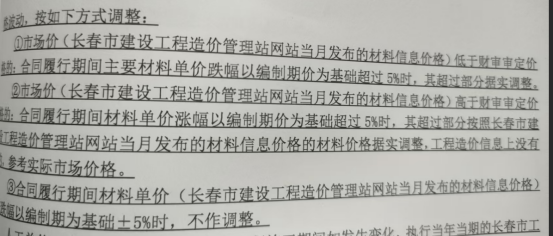 格波动，按如下方式调整：
①市场价（长春市建设工程造价管理站网站当月发布的材料信息价格）低于财审审定价
格的：合同履行期间主要材料单价跌幅以编制期价为基础超过5%时，其超过部分据实调整。
②市场价（长春市建设工程造价管理站网站当月发布的材料信息价格）高于财审审定价
格的：合同履行期间材料单价涨幅以编制期价为基础超过5%时，其超过部分按照长春市建
设工程造价管理站网站当月发布的材料信息价格的材料价格据实调整，工程造价信息上没有
，参考实际市场价格。
③合同履行期间材料单价（长春市建设工程造价管理站网站当月发布的材料信息价格）
跌幅以编制期为基础±5%时，不作调整。
期间如发生变化，执行当年当期的长春市工